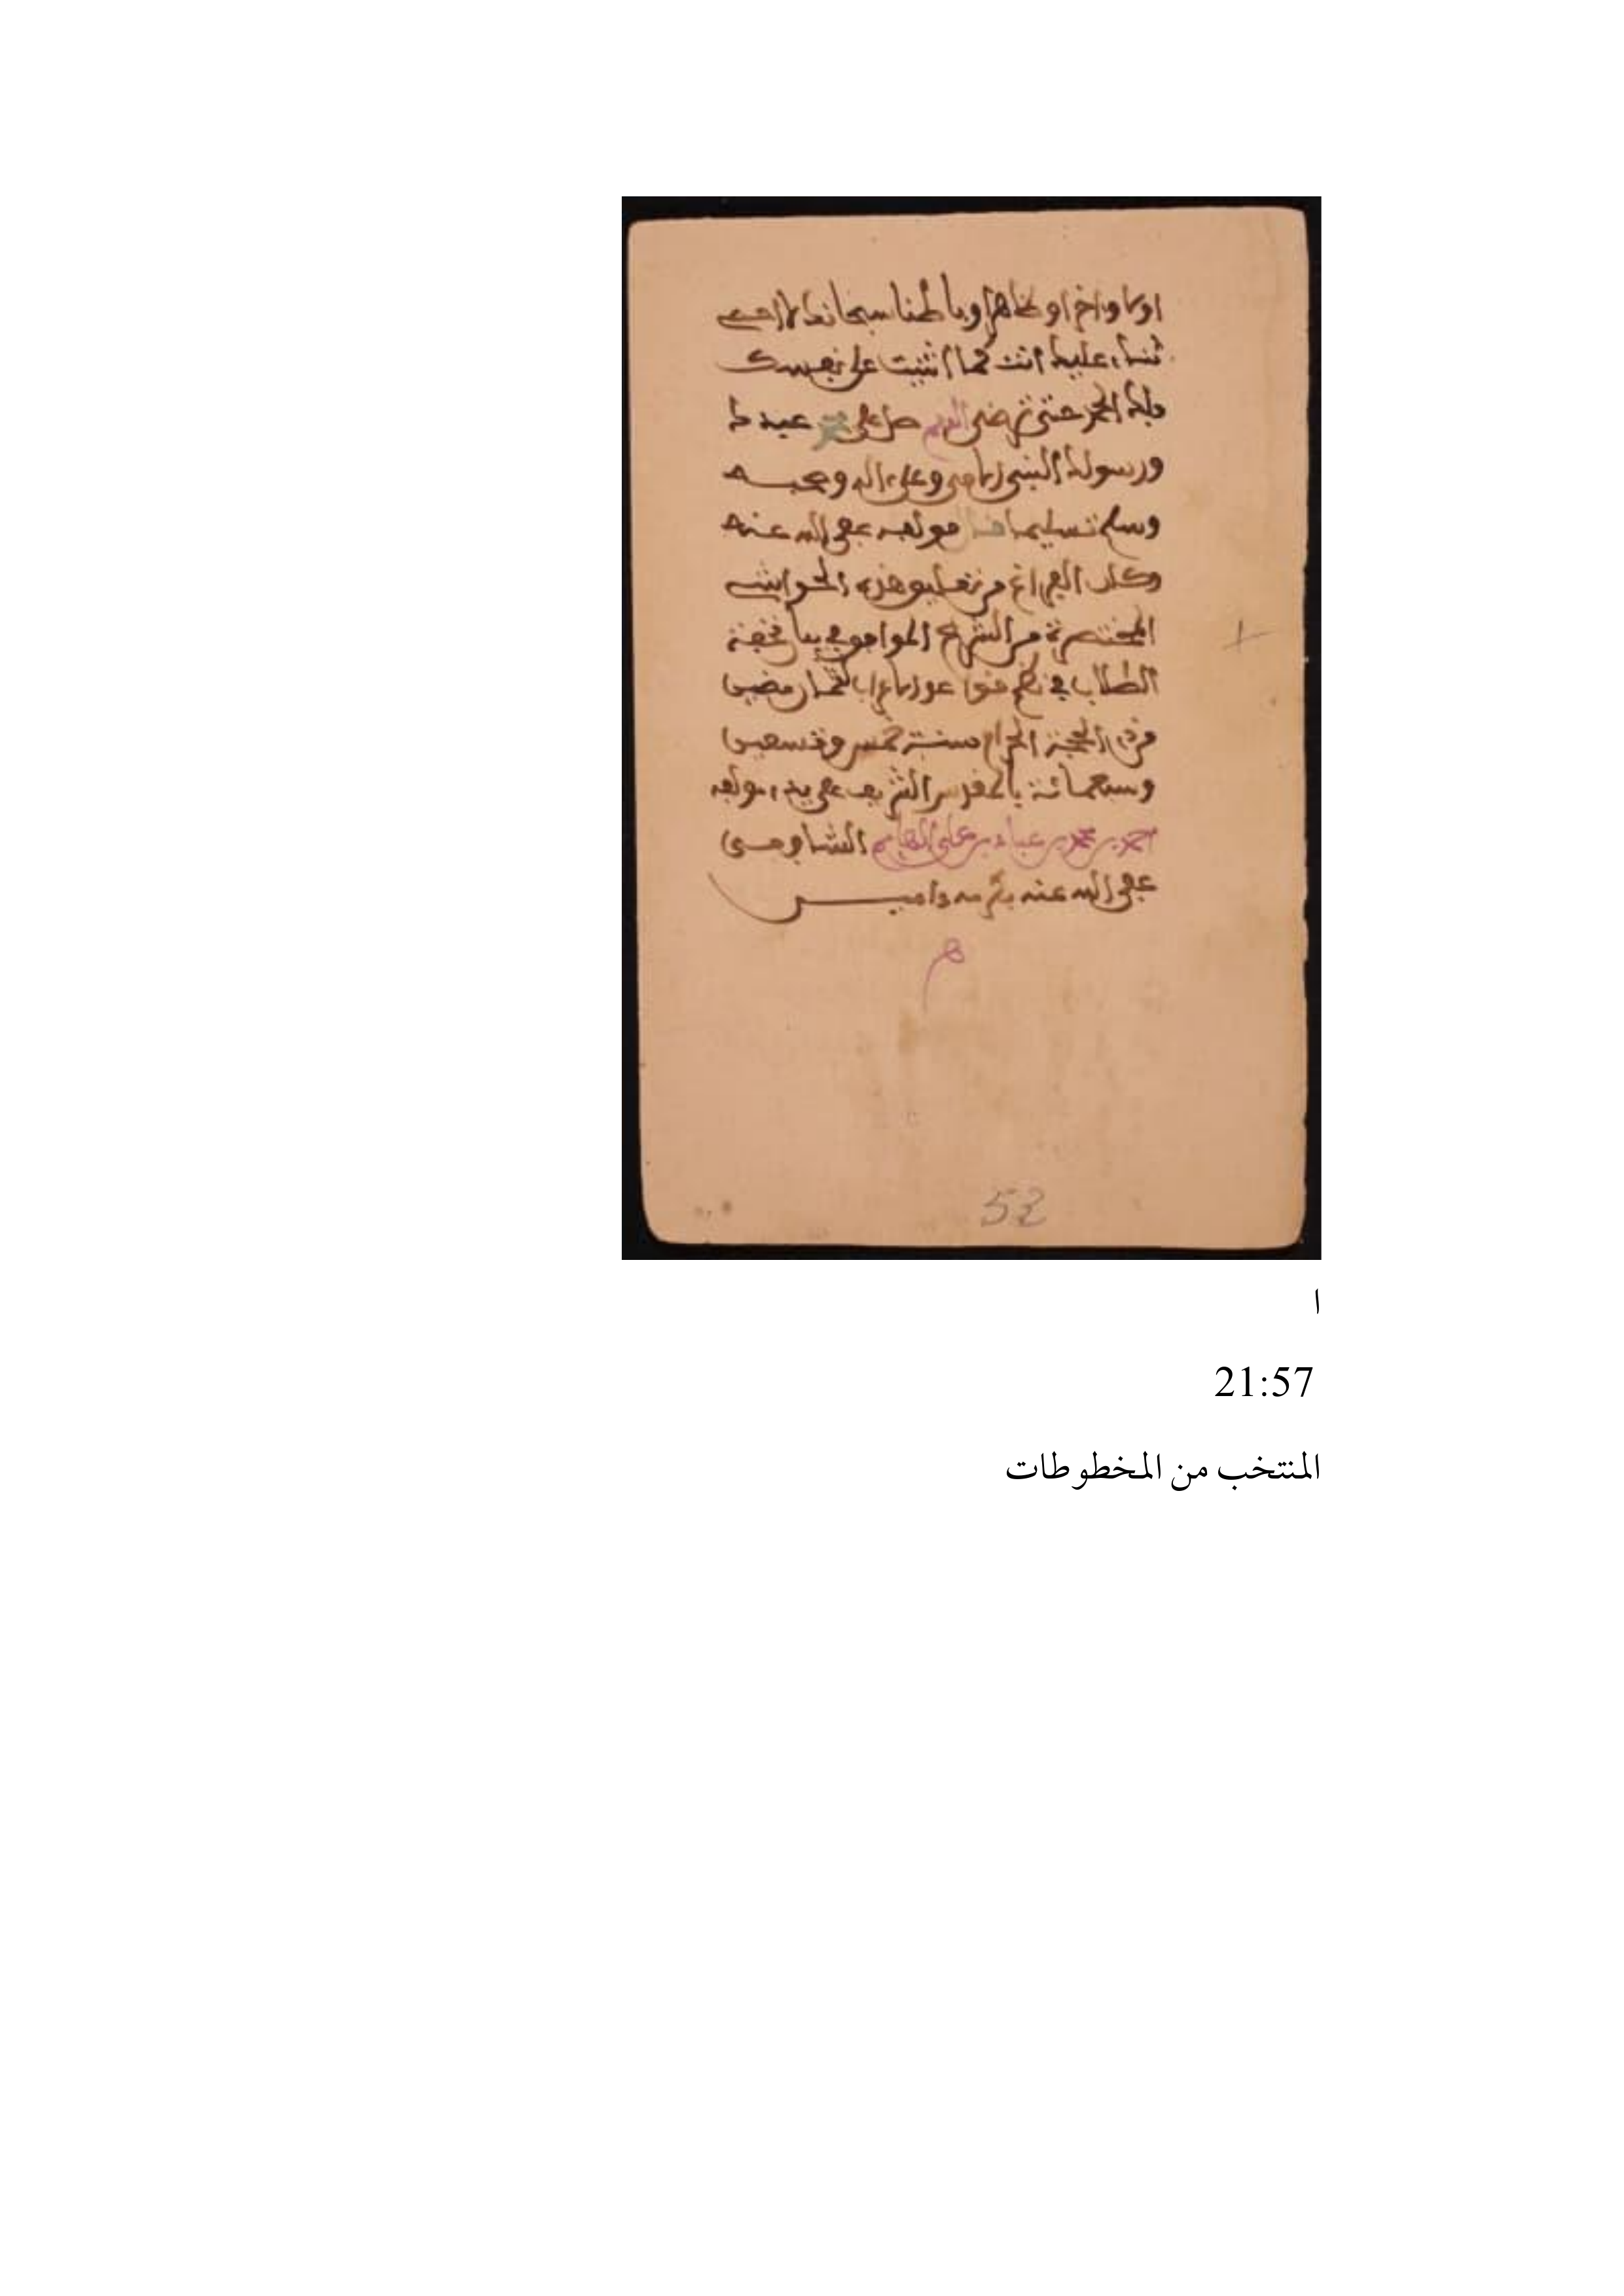 اولا واخرا وظاهرا وباطنا سبحانك لا احصى
ثناء عليك انت كما اثنيت على نفسك
فلك الحمد حتى ترضى اللهم صل على محمد عبدك
ورسولك النبى الامى وعلى اله وصحبه
وسلم تسليما قال مولفه عفى الله عنه
وكان الفراغ من تعليق هذه الحواشى
المختصرة من الشرح
الطلاب فى لثمان مضين
من ذى الحجة الحرام سنة خمس وتسعين
وسبعمائة بالقدس الشريف على يد مولفه
احمد بن محمد بن عماد بن على الهايم الشافعى
عفى الله عنه بكرمه وامين
هـ
52
ا
21:57
المنتخب من المخطوطات